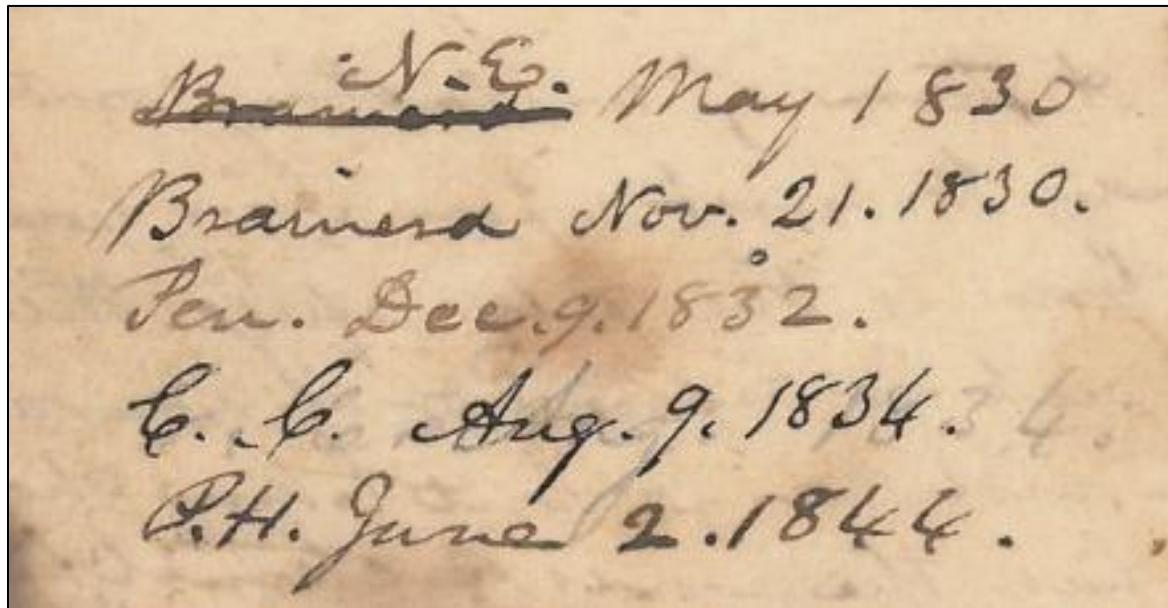 N.E.
Brainerd May 1830
Brainerd Nov. 21. 1830.
Pen. Dec. 9. 1832.
C. C. Aug. 9. 1834.
P.H. June 2. 1844.